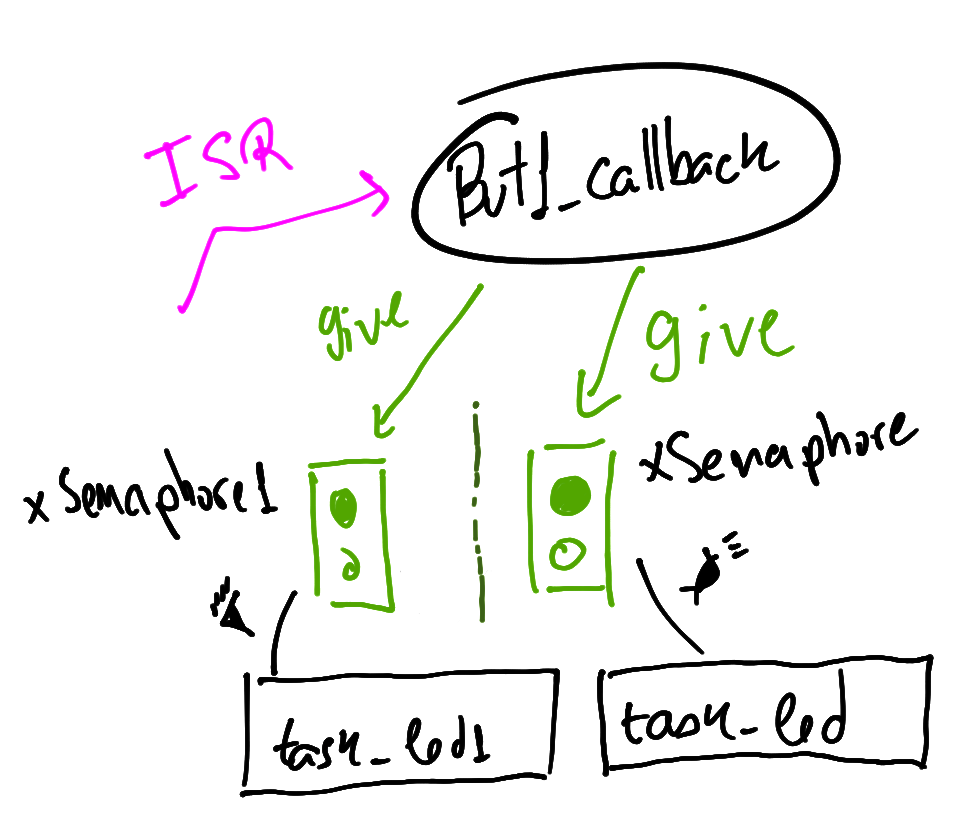 ISR
But1_callback
give
give
xSemaphore1
xSemaphore
task_led1
task_led